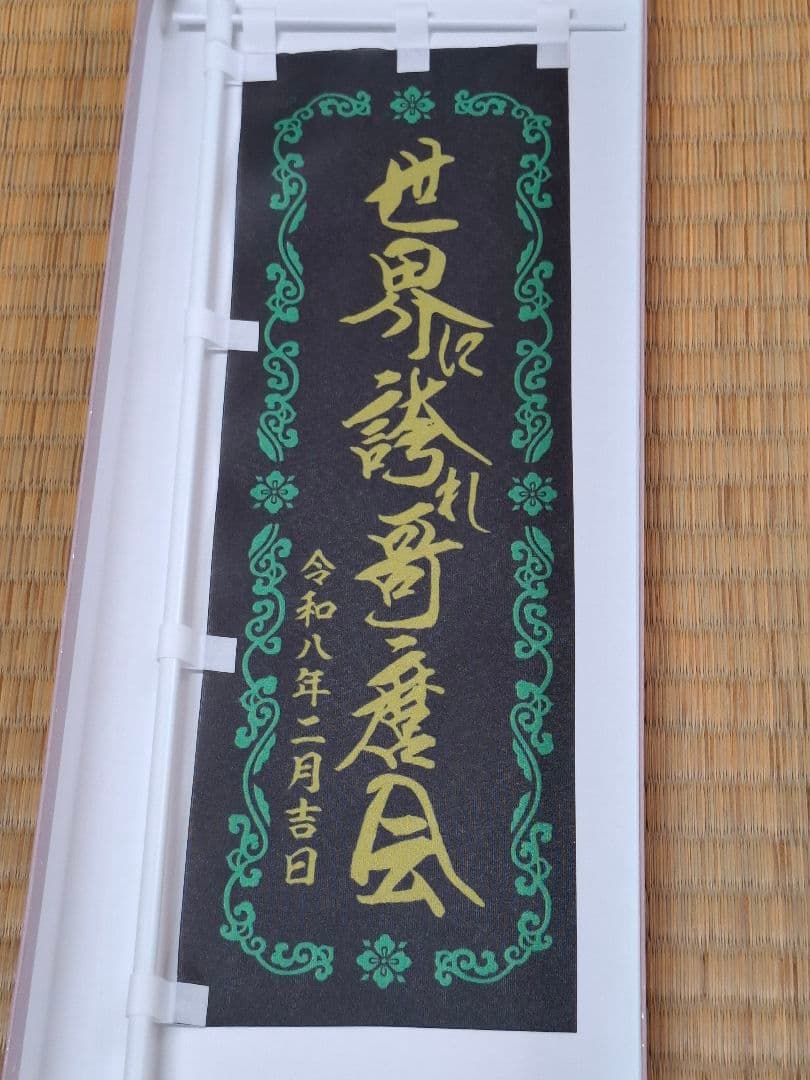 世界に誇れ哥麿会
令和八年二月吉日